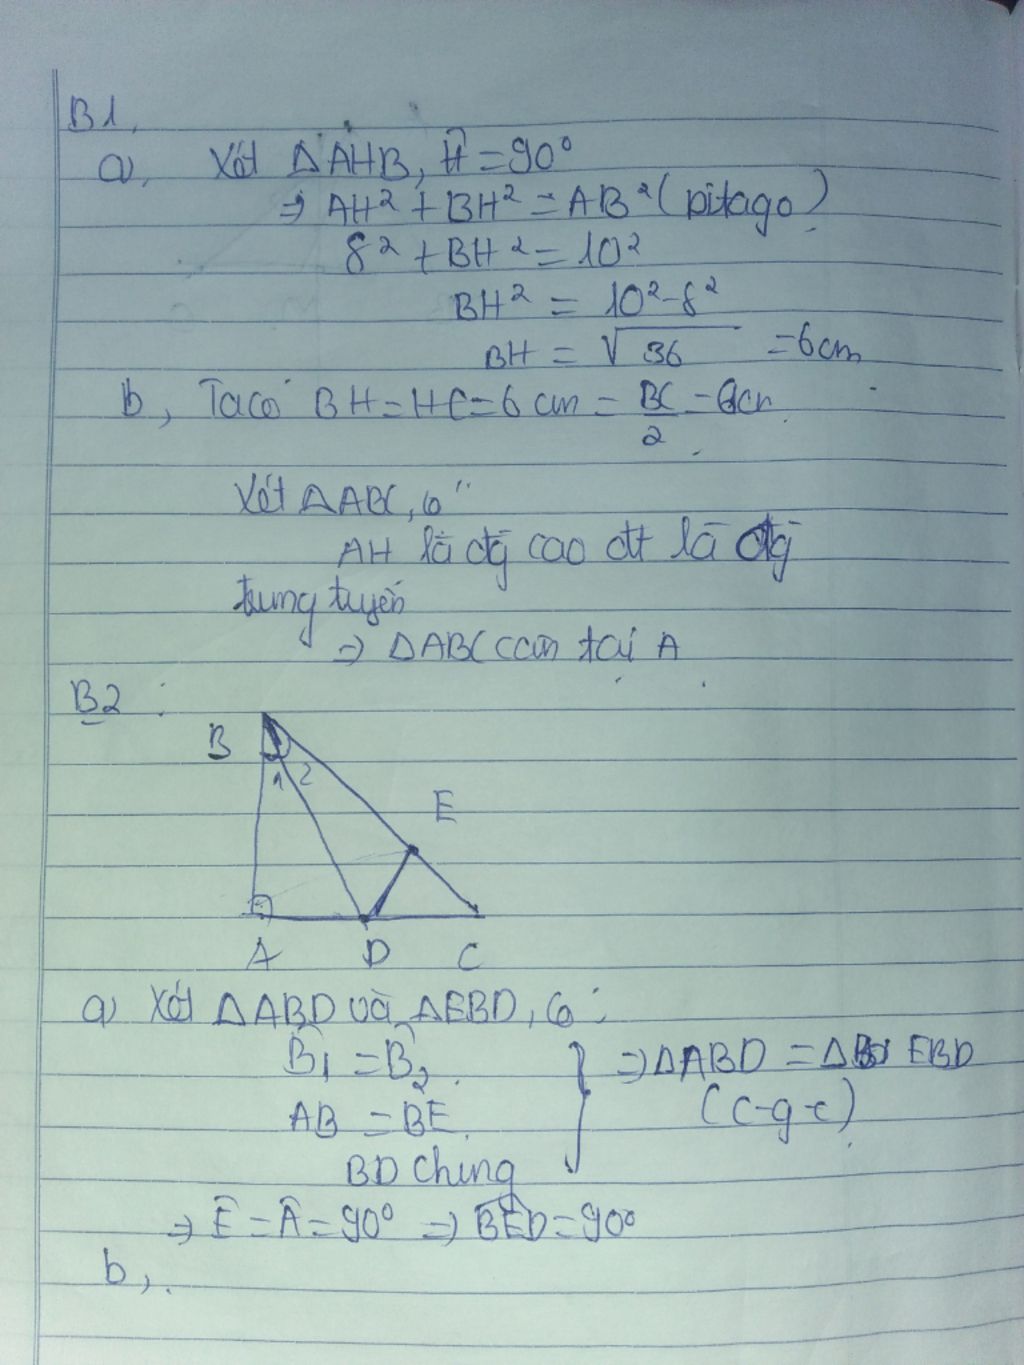 B1,
a, Xét ΔAHB, Ĥ = 90°
⇒ AH² + BH² = AB² (pitago)
8² + BH² = 10²
BH² = 10² - 8²
BH = √36 = 6cm
b, Ta có BH = HC = 6 cm = BC/2 = 6cm
Xét ΔABC, có
AH là đg cao đt là đg
trung tuyến
⇒ ΔABC cân tại A
B2 :
B
1 2
E
A D C
a) Xét ΔABD và ΔEBD, có :
B̂₁ = B̂₂ } ⇒ ΔABD = Δ EBD
AB = BE (c-g-c)
BD chung
⇒ Ê = Â = 90° ⇒ BÊD = 90°
b,